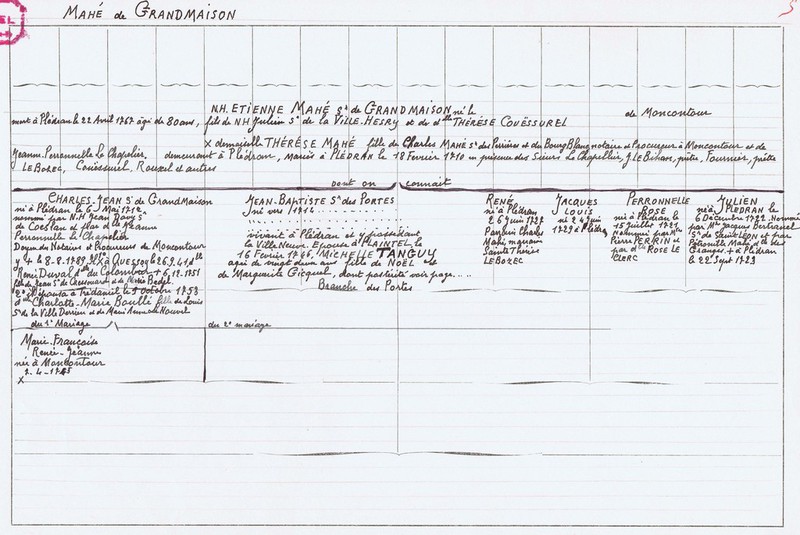 MAHÉ de GRANDMAISON
5
EL
N.H. ETIENNE MAHÉ Sr de GRANDMAISON né le
de Moncontour
mort à Plédran le 22 Avril 1767 agé de 80 ans, fils de N.H Julien Sr de la VILLE-HESRY et de dlle THÉRÈSE COUËSSUREL
x demoiselle THÉRÈSE MAHÉ fille de Charles MAHÉ Sr des Perrières et du Bourg Blanc notaire et Procureur à Moncontour et de
Jeanne Perronnelle Le Chapelier. demeurant à Plédran, mariés à PLÉDRAN le 18 Fevrier 1710 en présence des Sieurs Le Chapellier, J. LE prêtre, Fournier, prêtre
LE BOZEC, Couëssurel, Rouxel et autres
dont on connait
CHARLES-JEAN Sr de GrandMaison
né à Plédran le 6 Mai 1712
nommé par N.H Jean Sr
de et par dlle Jeanne
Perronnelle Le Chapelier
Doyen des Notaires et Procureurs de Moncontour
+ le 8-2-1789 X à Quessoy le 26.9.41 dlle
René Duval du Colombier + 6.12.1751
fille de Jean Sr de et de Bedel.
2° épousa à Trédaniel le 9 Octobre 1753
dlle Charlotte-Marie Boullé fille de Louis
Sr de la Ville Derrien et de Marie Anne de Nouvel
du 1er Mariage
du 2e mariage
Marie-Françoise
Renée-Jeanne
née à Moncontour
2-4-1745
X
JEAN-BAPTISTE Sr des PORTES
né vers 1714
vivant à Plédran et y possédant
la Ville Neuve. Epouse à PLAINTEL le
16 Fevrier 1746, MICHELLE TANGUY
agée de vingt deux ans fille de NOËL et
de Marguerite Gicquel, dont postérité voir page....
Branche des Portes
RENÉ
né à Plédran
26 Juin 1727
Charles
Mahé, mgnonne
Sainte Thérèse
LE BOZEC
JACQUES
LOUIS
né 24 Juin
1729 à Plédran
PERRONNELLE
ROSE
née à Plédran le
15 juillet 1721
Nommée par Mr
Pierre PERRIN et
par dlle ROSE LE
CLERC
JULIEN
né à PLEDRAN le
6 Décembre 1722 Nommé
par Mr Jacques Bertranel
Sr de Saint LEON et par
Pétronille Mahé dlle des
Granges. + à Plédran
le 22 Sept 1723